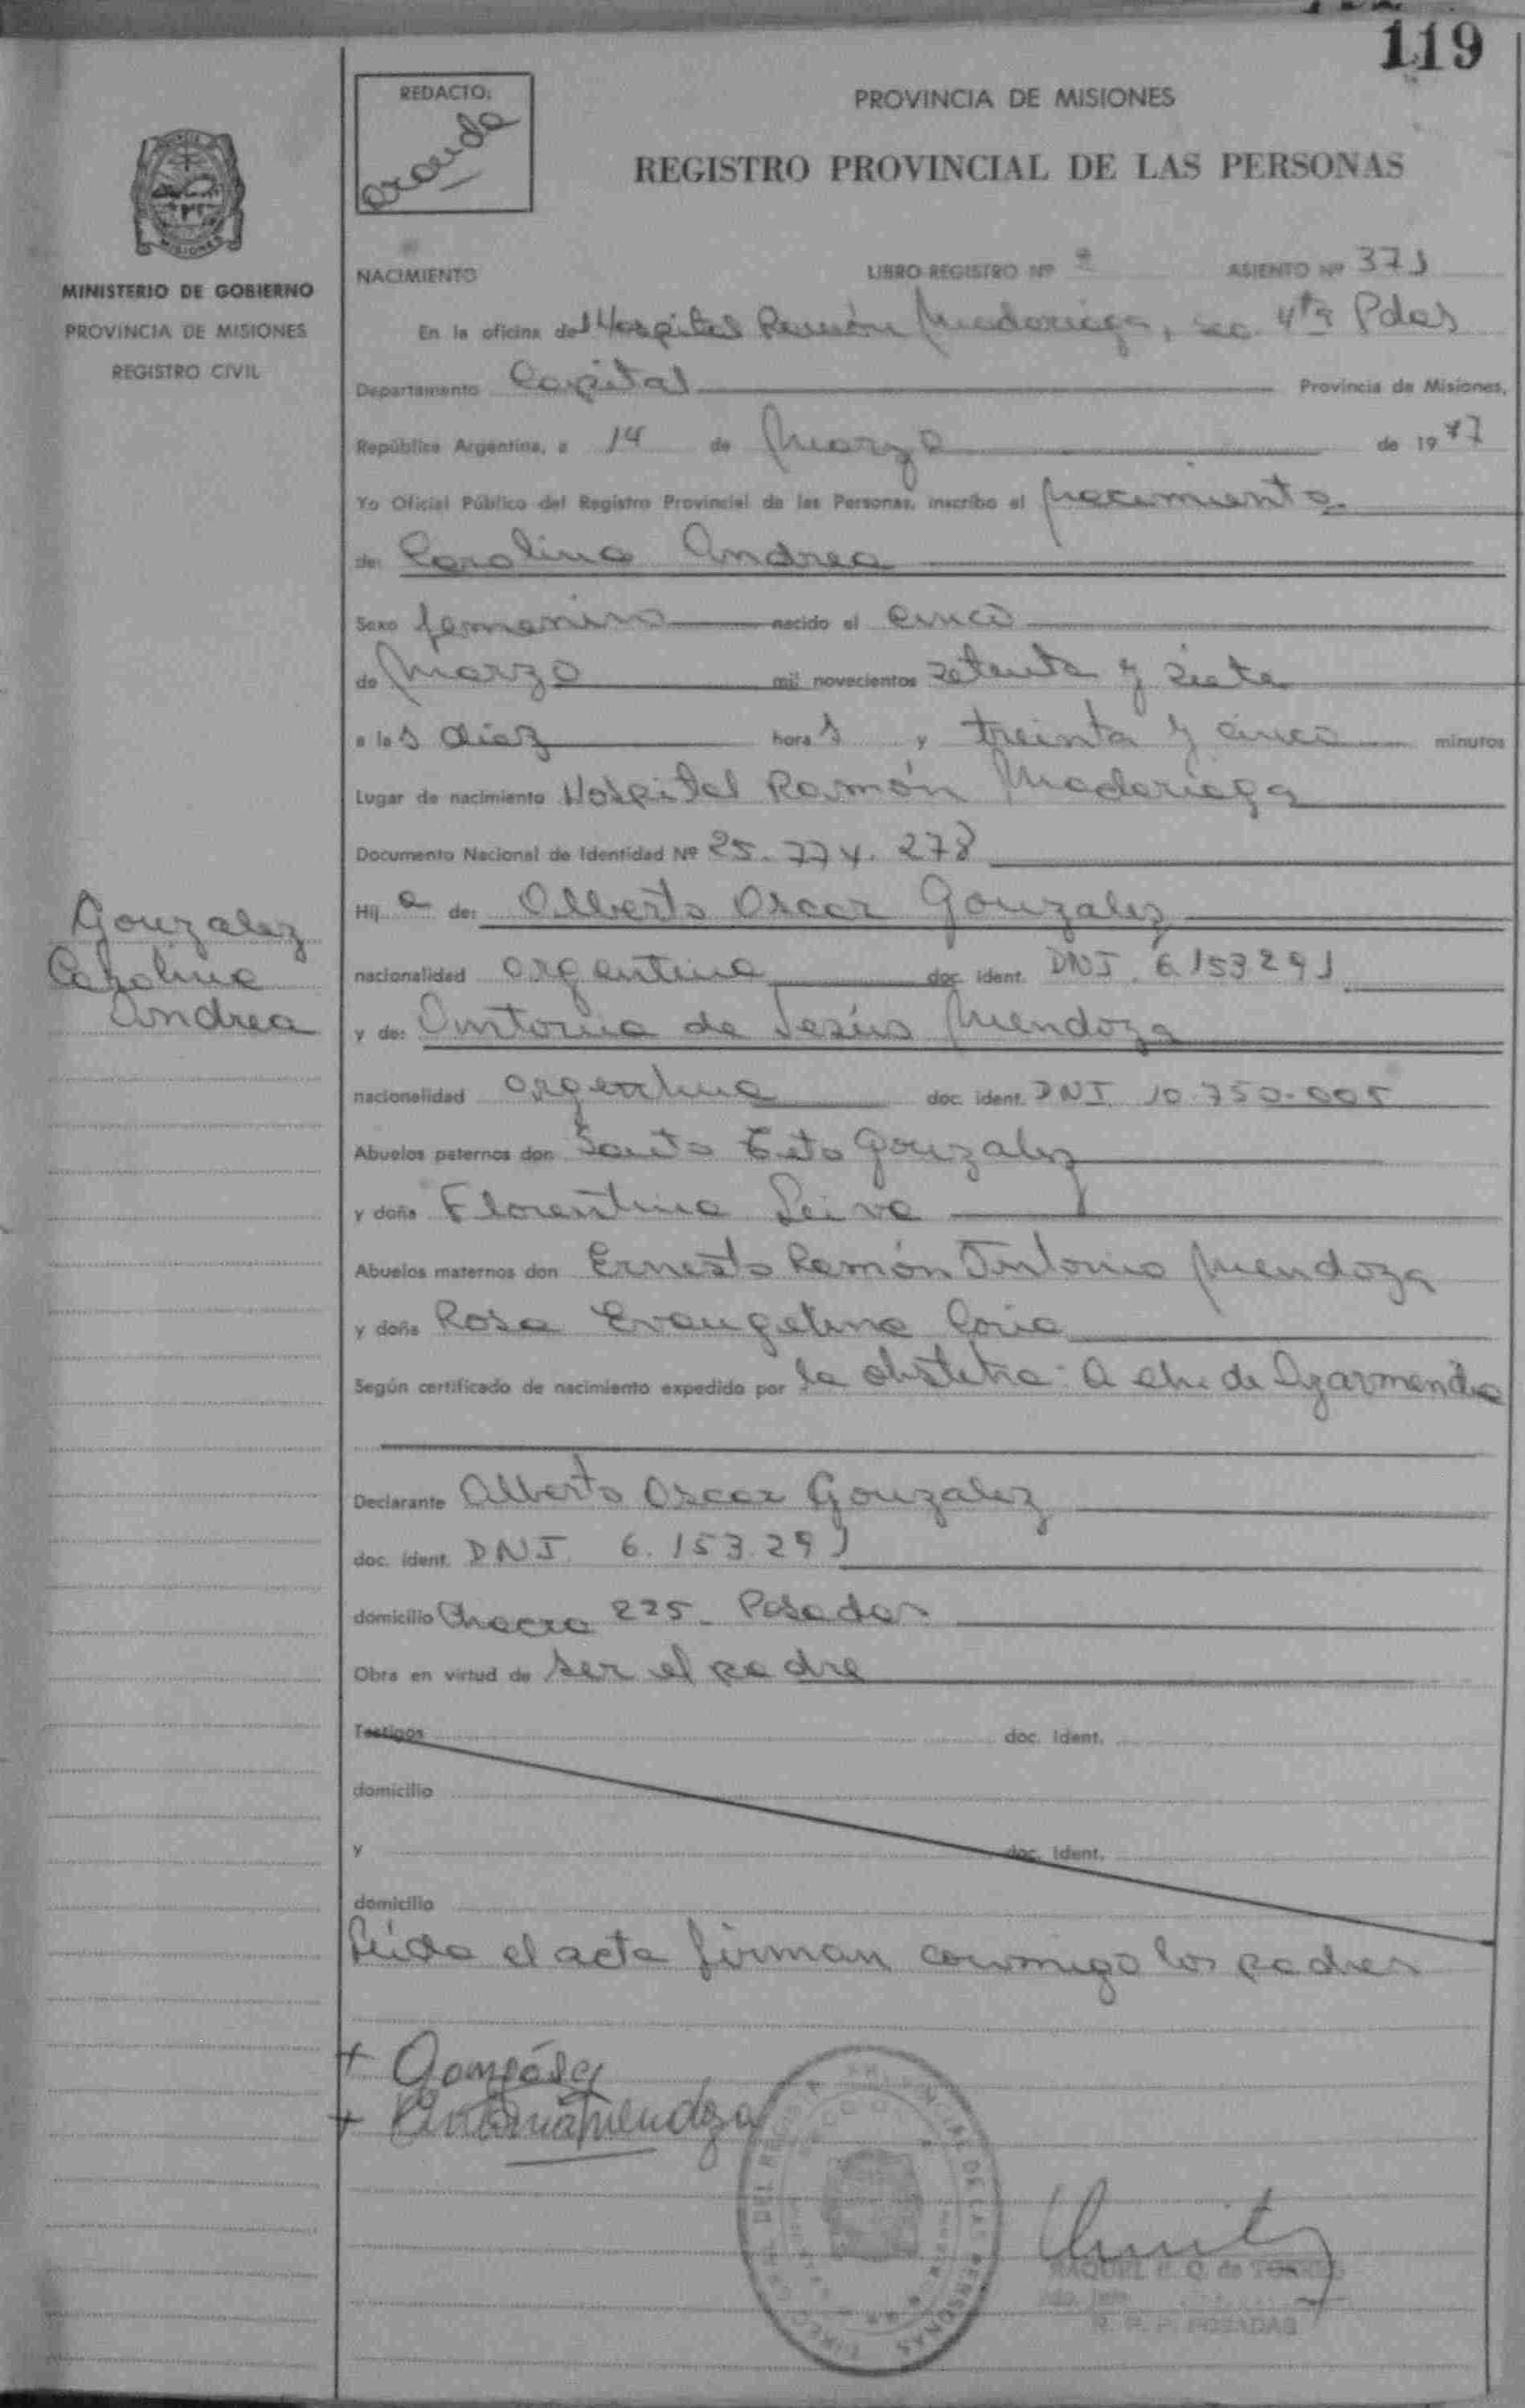 119
REDACTO:
Aranda
PROVINCIA DE MISIONES
REGISTRO PROVINCIAL DE LAS PERSONAS
MINISTERIO DE GOBIERNO
PROVINCIA DE MISIONES
REGISTRO CIVIL
NACIMIENTO LIBRO REGISTRO Nº ASIENTO Nº 371
En la oficina del Hospital Ramón Madariaga, sec. 4ta Pdas
Departamento Capital Provincia de Misiones,
República Argentina, a 14 de Marzo de 1977
Yo Oficial Público del Registro Provincial de las Personas, inscribo el Nacimiento
de: Carolina Andrea
Sexo femenino nacido el cinco
de Marzo mil novecientos setenta y siete
a las diez horas y treinta y cinco minutos
Lugar de nacimiento Hospital Ramón Madariaga
Documento Nacional de Identidad Nº 25.774.278
Hija de: Alberto Oscar Gonzalez
Gonzalez
Carolina
Andrea
nacionalidad argentina doc. ident. DNI. 6.153.291
y de: Antonia de Jesús Mendoza
nacionalidad argentina doc. ident. DNI 10.750.005
Abuelos paternos don Santo Gonzalez
y doña Florentina Leiva
Abuelos maternos don Ernesto Ramón Antonio Mendoza
y doña Rosa Evangelina Coria
Según certificado de nacimiento expedido por la obstetra: de
Declarante Alberto Oscar Gonzalez
doc. ident. DNI 6.153.291
domicilio Chacra 225 - Posadas
Obra en virtud de ser el padre
Testigos doc. ident.
domicilio
y doc. ident.
domicilio
Leida el acta firman conmigo los padres
+ Gonzáles
+ Antonia Mendoza
RAQUEL E. Q. de TORRES
R. P. P. POSADAS